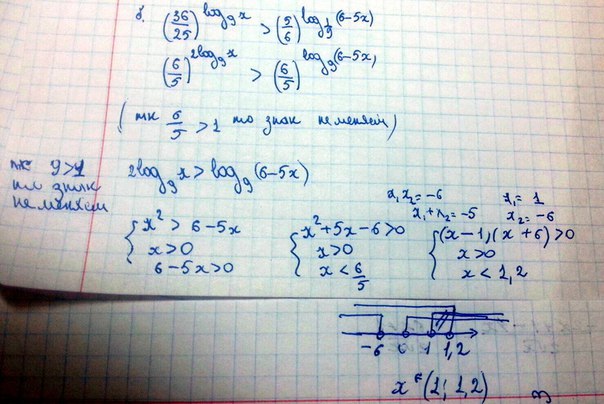 б. (36/25)^{log_9 x} > (5/6)^{log_{1/9}(6-5x)}
(6/5)^{2log_9 x} > (6/5)^{log_9(6-5x)}
(тк 6/5 > 1 то знак не меняем)
тк 9>1 то знак не меняем
2log_9 x > log_9(6-5x)
x₁x₂=-6 x₁=1
x₁+x₂=-5 x₂=-6
{ x²>6-5x { x²+5x-6>0 { (x-1)(x+6)>0
x>0 x>0 x>0
6-5x>0 x<6/5 x<1,2
-6 0 1 1,2
x ∈ (1; 1,2)